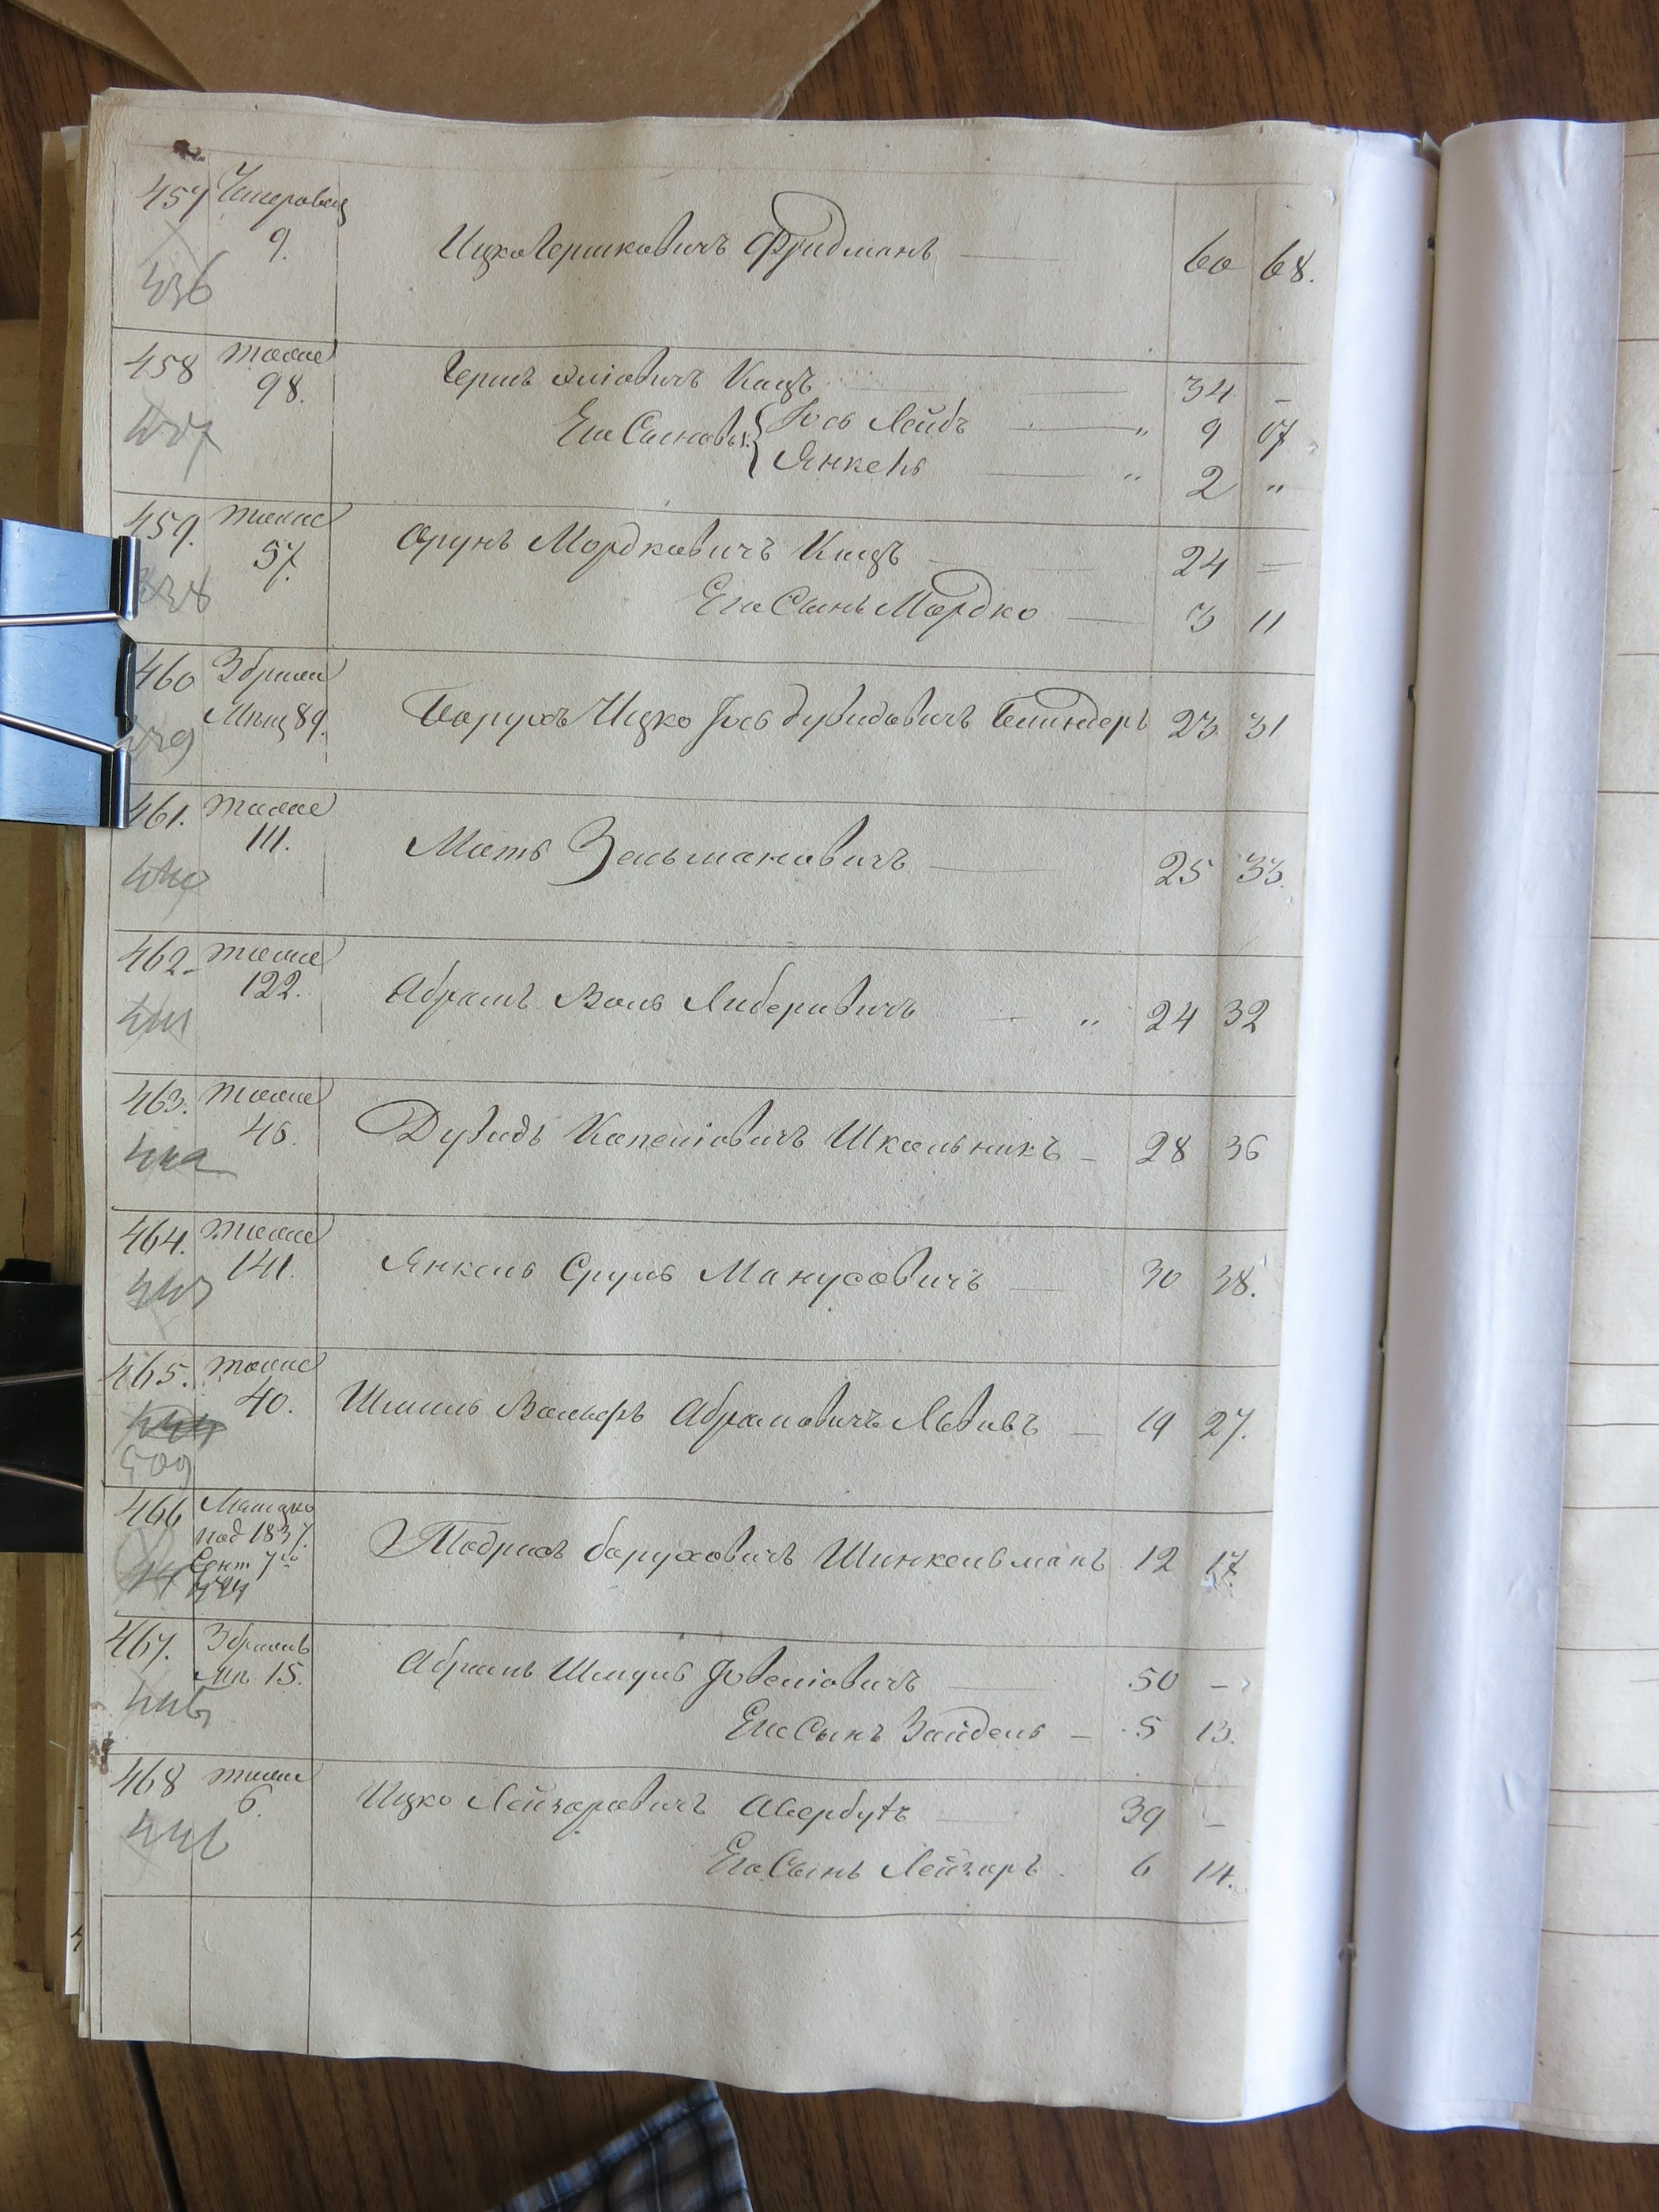 457 Чемеровец
9. Ицко Гершковичъ Фридманъ 60 68.
436
458 тоже
98. Гершъ Эліовичъ Кацъ 34 -
Его Сыновья { Іось Лейбъ " 9 07
437 Янкель " 2 "
459. тоже
57. Орунъ Мордковичъ Кацъ 24 =
438 Его Сынъ Мордко 3 11
460 Збриж
Мѣщ 89. Борухъ Ицко Іось Дувидовичъ 23 31
439
461. тоже
111. Моть Зельмановичъ 25 33.
440
462. тоже
122. Абрамъ Воль Либеровичъ " 24 32
441
463. тоже
46. Дувидъ Копеліовичъ Школьникъ - 28 36
442
464. тоже
141. Янкель Сруль Манусовичъ 30 38.
443
465. тоже
40. Шмиль Вольфъ Абрамовичъ 19 27.
444
509
466
под 1837.
Сент 7го
Тодрисъ Боруховичъ Шинкельманъ 12 17.
467. Збрижъ
Мп. 15. Абрамъ Шмуль Іовеліовичъ 50 -
445 Его Сынъ Зайдель - 5 13.
468 тоже
6. Ицко Лейзоровичъ Авербухъ 39 -
446 Его Сынъ Лейзоръ. 6 14.